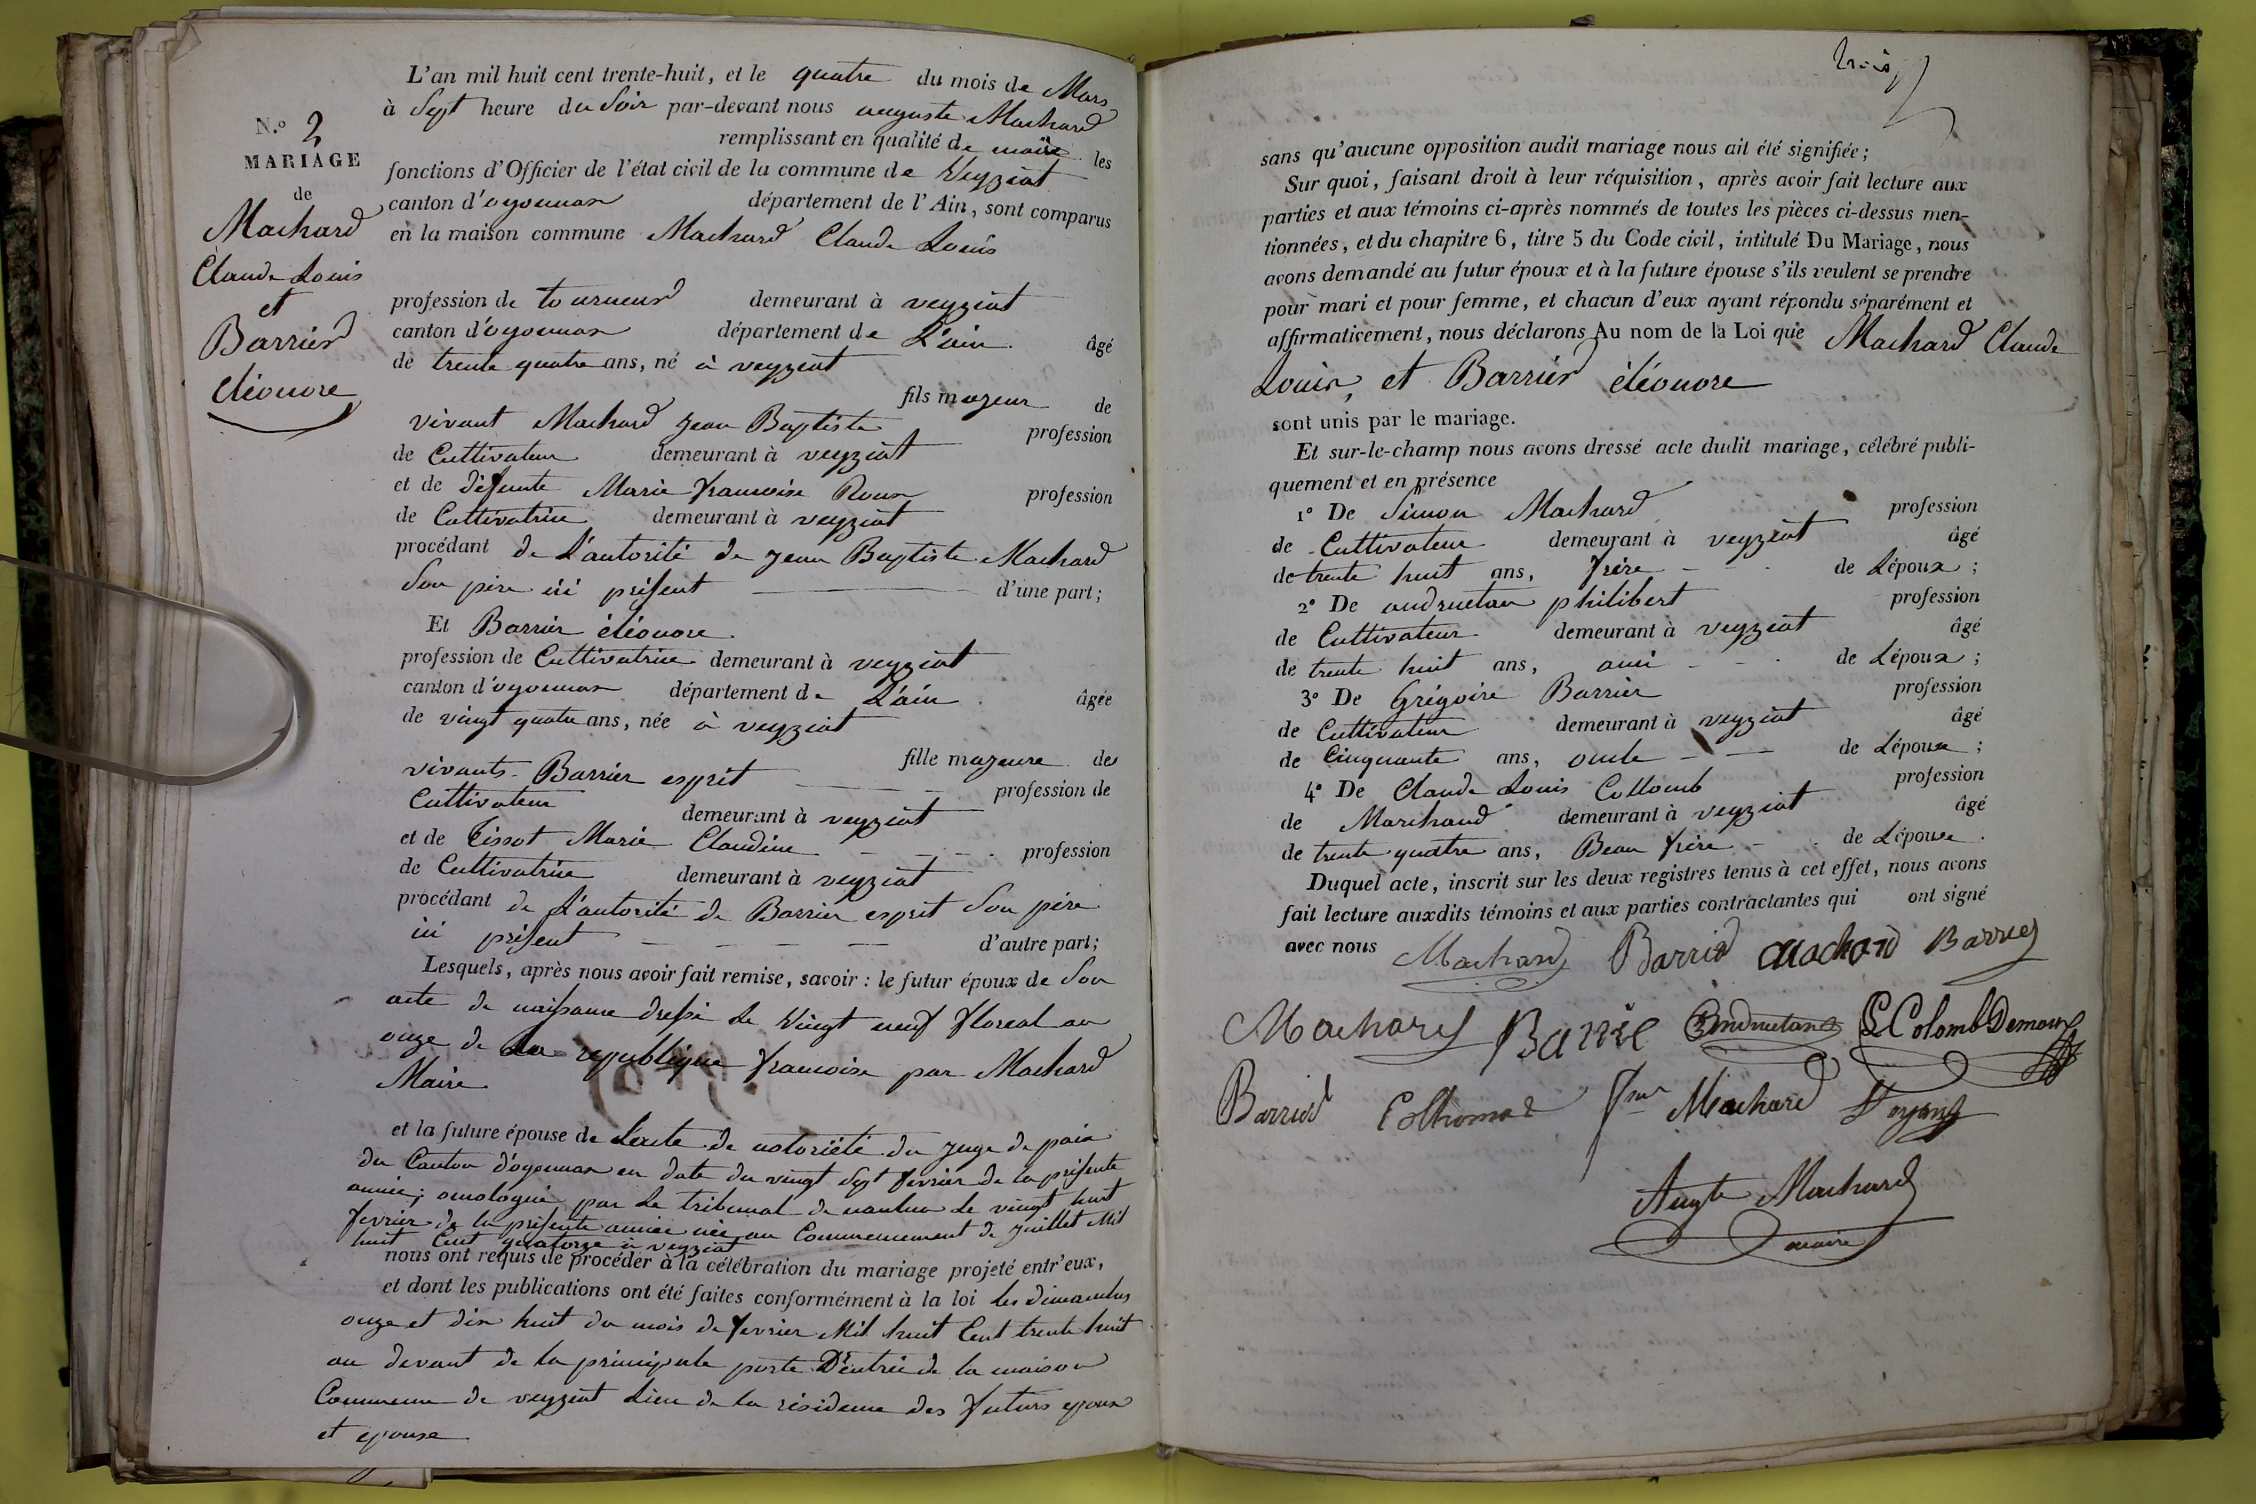 N.o 2
MARIAGE
de
Machard
Claude Louis
et
Barrier
éléonore
L'an mil huit cent trente-huit, et le quatre du mois de Mars
à Sept heure du Soir par-devant nous auguste Machard
remplissant en qualité de maire les
fonctions d'Officier de l'état civil de la commune de Veyziat
canton d'oyonnax département de l'Ain, sont comparus
en la maison commune Machard Claude Louis
profession de tourneur demeurant à veyziat
canton d'oyonnax département de L'ain. âgé
de trente quatre ans, né à veyziat
fils majeur de
vivant Machard jean Baptiste profession
de Cultivateur demeurant à veyziat
et de défunte Marie francoise Roux profession
de Cultivatrice demeurant à veyziat
procédant de L'autorité de jean Baptiste Machard
Son père ici présent d'une part;
Et Barrier éléonore
profession de Cultivatrice demeurant à veyziat
canton d'oyonnax département de L'ain âgée
de vingt quatre ans, née à veyziat
fille majeure des
vivants Barrier esprit profession de
Cultivateur demeurant à veyziat
et de Tissot Marie Claudine profession
de Cultivatrice demeurant à veyziat
procédant de L'autorité de Barrier esprit Son père
ici présent d'autre part;
Lesquels, après nous avoir fait remise, savoir : le futur époux de Son
acte de naissance dressé Le Vingt neuf floreal an
onze de La republique francoise par Machard
Maire
et la future épouse de L'acte de notoriété du juge de paix
du Canton d'oyonnax en date du vingt Sept fevrier de la présente
année; omologué par Le tribunal de nantua Le vingt huit
fevrier de la présente année née au Commencement de juillet Mil
huit Cent quatorze à veyziat
nous ont requis de procéder à la célébration du mariage projeté entr'eux,
et dont les publications ont été faites conformément à la loi les dimanches
onze et dix huit du mois de fevrier Mil huit Cent trente huit
au devant de la principale porte D'entrée de la maison
Commune de veyziat Lieu de la résidence des futurs epoux
et epouse
trois
sans qu'aucune opposition audit mariage nous ait été signifiée;
Sur quoi, faisant droit à leur réquisition, après avoir fait lecture aux
parties et aux témoins ci-après nommés de toutes les pièces ci-dessus men-
tionnées, et du chapitre 6, titre 5 du Code civil, intitulé Du Mariage, nous
avons demandé au futur époux et à la future épouse s'ils veulent se prendre
pour mari et pour femme, et chacun d'eux ayant répondu séparément et
affirmativement, nous déclarons Au nom de la Loi que Machard Claude
Louis, et Barrier éléonore
sont unis par le mariage.
Et sur-le-champ nous avons dressé acte dudit mariage, célébré publi-
quement et en présence
1o De Simon Machard profession
de Cultivateur demeurant à veyziat âgé
de trente huit ans, frère de Lépoux;
2o De andruetan philibert profession
de Cultivateur demeurant à veyziat âgé
de trente huit ans, ami de Lépoux;
3o De Grégoire Barrier profession
de Cultivateur demeurant à veyziat âgé
de Cinquante ans, oncle de Lépouse;
4o De Claude Louis Collomb profession
de Marchand demeurant à veyziat âgé
de trente quatre ans, Beau frère de Lépouse.
Duquel acte, inscrit sur les deux registres tenus à cet effet, nous avons
fait lecture auxdits témoins et aux parties contractantes qui ont signé
avec nous Machard Barrier Machard Barrier
Machard Barrie Andruetan CL Colomb Demoux
Barrier Machard
Augte Machard
maire